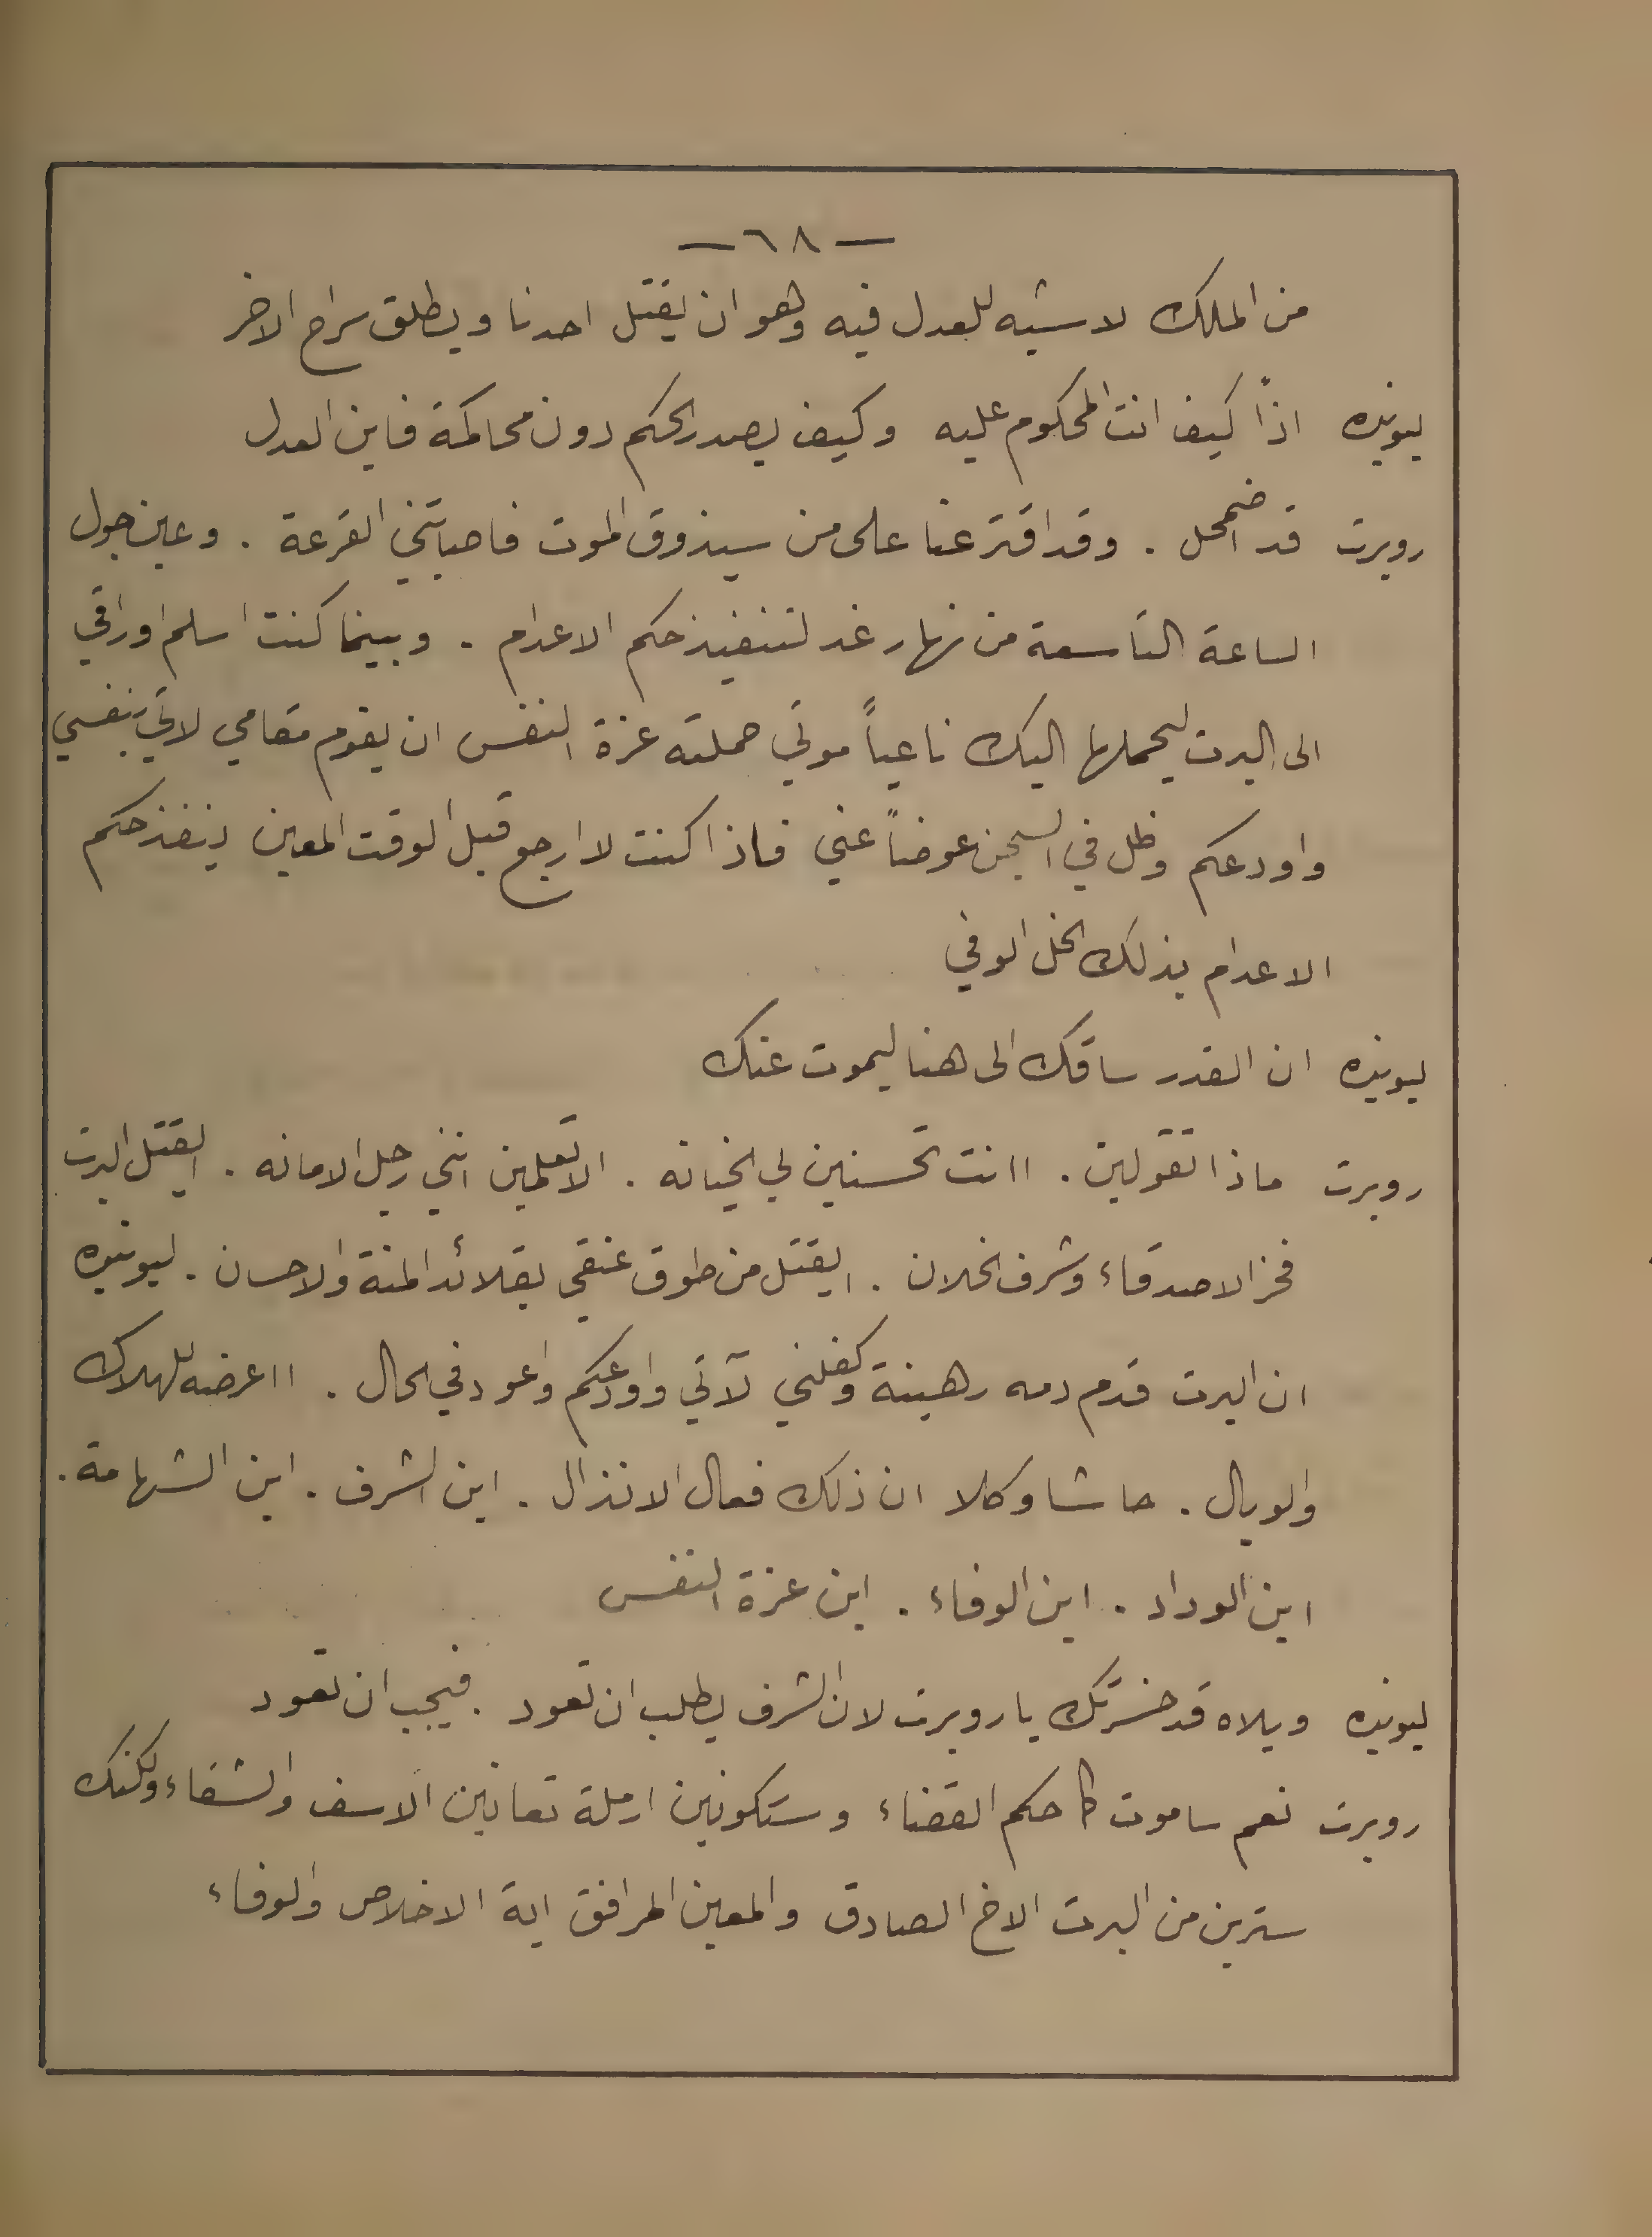 — ٦٨ —
من الملك لا شبه للعدل فيه وهو ان يقتل احدنا ويطلق سراح الاخر
ليونيره اذاً كيف انت المحكوم عليه وكيف يصدر الحكم دون محاكمة فاين العدل
روبرت قد اضمحل . وقد اقترعنا على من سيذوق الموت فاصابتني القرعة . وعين جول
الساعة التاسعة من نهار غد لتنفيذ حكم الاعدام . وبينما كنت اسلم اوراقي
الى البرت ليحملها اليك ناعياً موتي حملته عزة النفس ان يقوم مقامي لاتي بنفسي
واودعكم وظل في السجن عوضاً عني فاذا كنت لا ارجع قبل الوقت المعين ينفذ حكم
الاعدام بذلك الخل الوفي
ليونيره ان القدر ساقك الى هنا ليموت عنك
روبرت ماذا تقولين . اانت تحسنين لي الخيانه . الا تعلمين انني رجل الامانه . ايقتل البرت
فخر الاصدقاء وشرف الخلان . ايقتل من طوق عنقي بقلائد المنة والاحسان . ليونيره
ان البرت قدم دمه رهينة وكفلني لآتي واودعكم واعود في الحال . ااعرضه للهلاك
والوبال . حاشا وكلا ان ذلك فعال الانذال . اين الشرف . اين الشهامة .
اين الوداد . اين الوفاء . اين عزة النفس
ليونيره ويلاه قد خسرتك يا روبرت لان الشرف يطلب ان تعود . فيجب ان تعود
روبرت نعم ساموت كما حكم القضاء وستكونين ارملة تعانين الاسف والشقاء ولكنك
سترين من البرت الاخ الصادق والمعين المرافق اية الاخلاص والوفاء